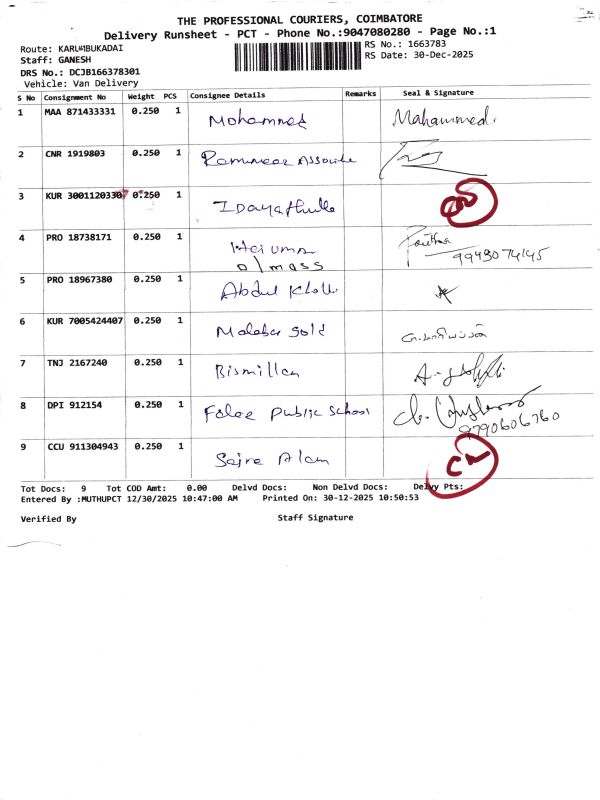 THE PROFESSIONAL COURIERS, COIMBATORE
Delivery Runsheet - PCT - Phone No.:9047080280 - Page No.:1
Route: KARUMBUKADAI
RS No.: 1663783
Staff: GANESH
RS Date: 30-Dec-2025
DRS No.: DCJB166378301
Vehicle: Van Delivery
S No Consignment No Weight PCS Consignee Details Remarks Seal & Signature
1 MAA 871433331 0.250 1 Mohammed Mahammed.
2 CNR 1919803 0.250 1
3 KUR 3001120330 0.250 1 Idayathulla
4 PRO 18738171 0.250 1
9943074145
5 PRO 18967380 0.250 1 Abdul
6 KUR 7005424407 0.250 1 Malabar Gold
7 TNJ 2167240 0.250 1 Bismillah
8 DPI 912154 0.250 1 Public School
9790606760
9 CCU 911304943 0.250 1 Alam
Tot Docs: 9 Tot COD Amt: 0.00 Delvd Docs: Non Delvd Docs: Delvy Pts:
Entered By :MUTHUPCT 12/30/2025 10:47:00 AM Printed On: 30-12-2025 10:50:53
Verified By Staff Signature